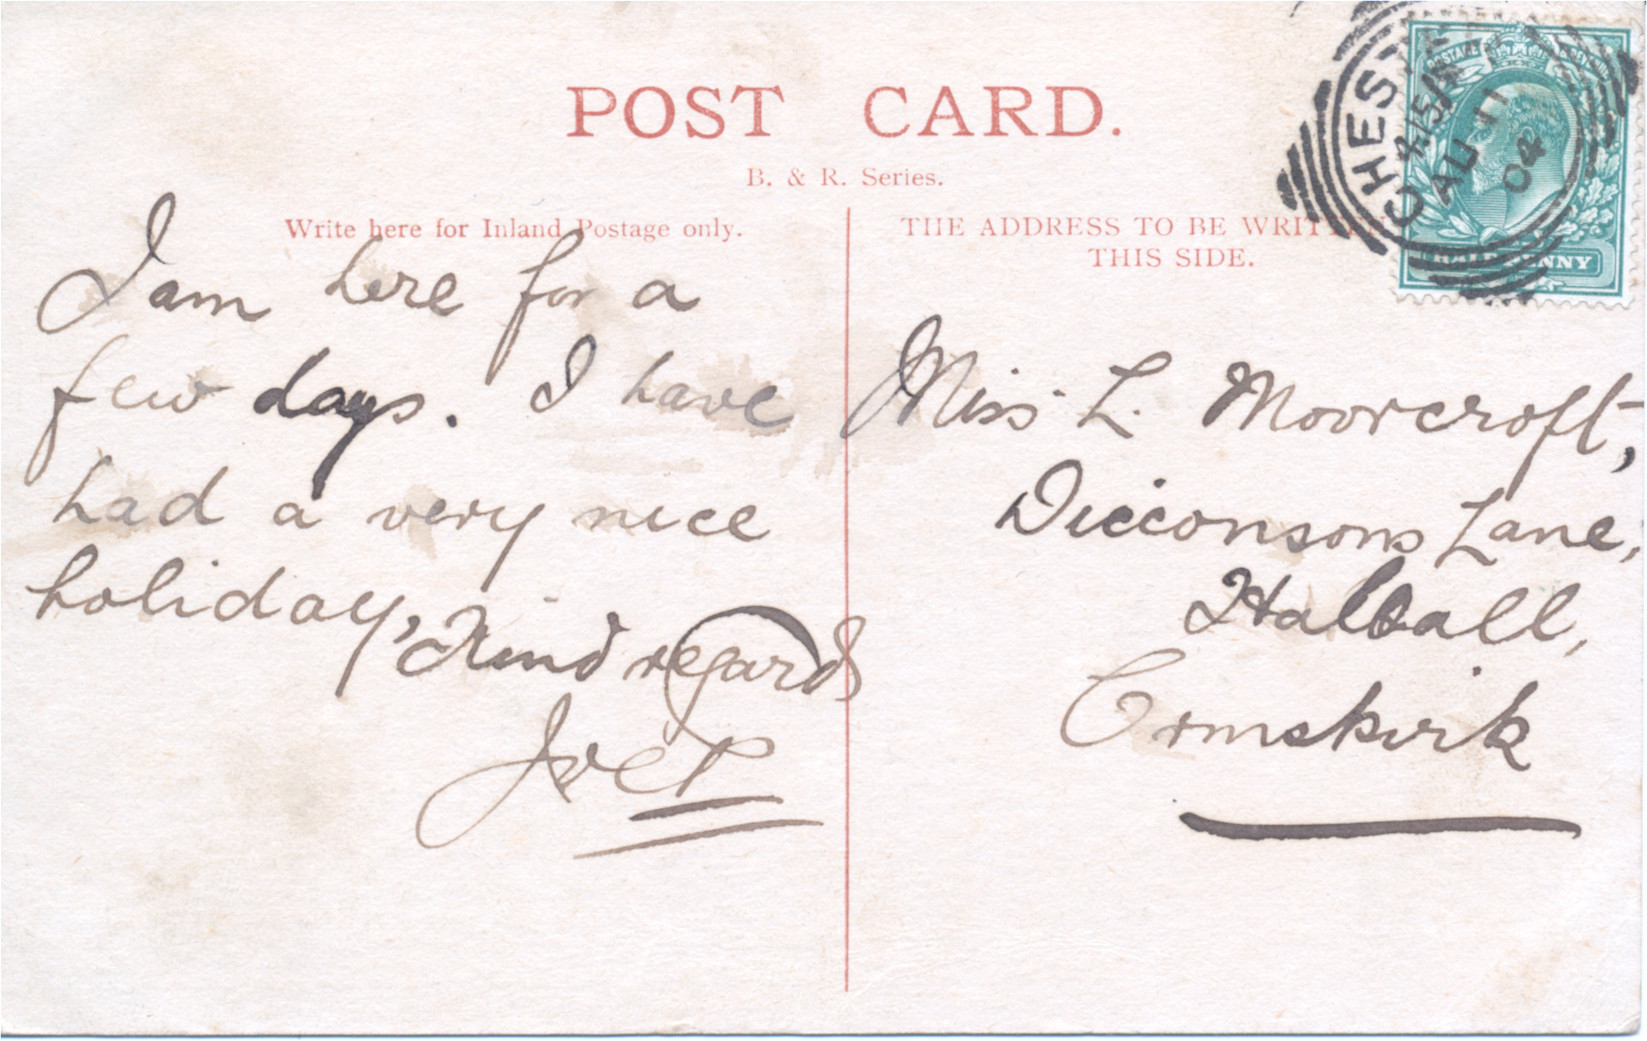 POST CARD.
B. & R. Series.
Write here for Inland Postage only.
I am here for a
few days. I have
had a very nice
holiday, Kind regards
THE ADDRESS TO BE WRITTEN
THIS SIDE.
Miss L. Moorcroft,
Dicconsons Lane,
Halsall,
Ormskirk
CHES
4.15
AU 11
04